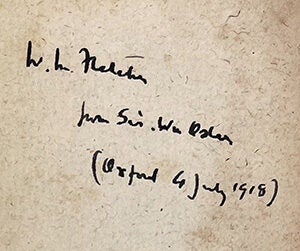 W. M. Fletcher
from Sir. Wm Osler
(Oxford 4 July 1918)